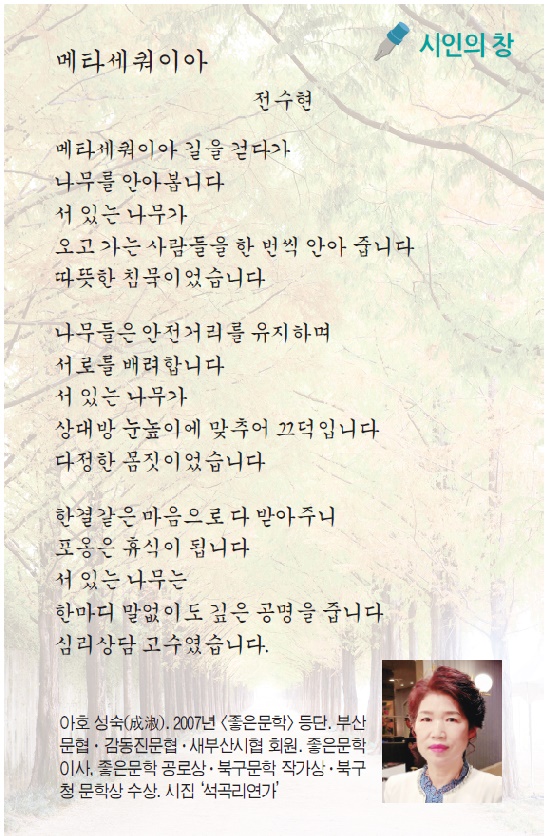 시인의 창
메타세쿼이아
전수현
메타세쿼이아 길을 걷다가
나무를 안아봅니다
서 있는 나무가
오고 가는 사람들을 한 번씩 안아 줍니다
따뜻한 침묵이었습니다
나무들은 안전거리를 유지하며
서로를 배려합니다
서 있는 나무가
상대방 눈높이에 맞추어 끄덕입니다
다정한 몸짓이었습니다
한결같은 마음으로 다 받아주니
포옹은 휴식이 됩니다
서 있는 나무는
한마디 말없이도 깊은 공명을 줍니다
심리상담 고수였습니다.
아호 성숙(成淑). 2007년 〈좋은문학〉 등단. 부산
문협·감동진문협·새부산시협 회원. 좋은문학
이사. 좋은문학 공로상·북구문학 작가상·북구
청 문학상 수상. 시집 ‘석곡리연가’